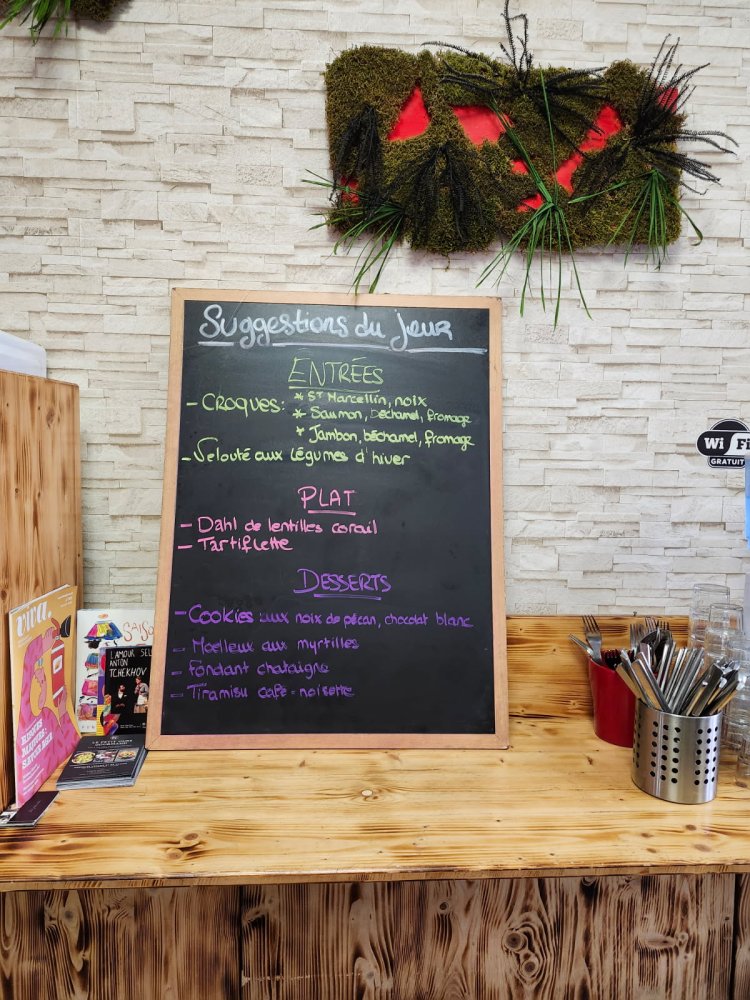 Suggestions du jour
ENTRÉES
- CROQUES: * St Marcellin, noix
* Saumon, béchamel, fromage
* Jambon, béchamel, fromage
- Velouté aux légumes d'hiver
PLAT
- Dahl de lentilles corail
- Tartiflette
DESSERTS
- Cookies aux noix de pécan, chocolat blanc
- Moelleux aux myrtilles
- Fondant chataigne
- Tiramisu café-noisette
Wi Fi
GRATUIT
viva.
SAISO
L'AMOUR
ANTON
TCHEKHOV